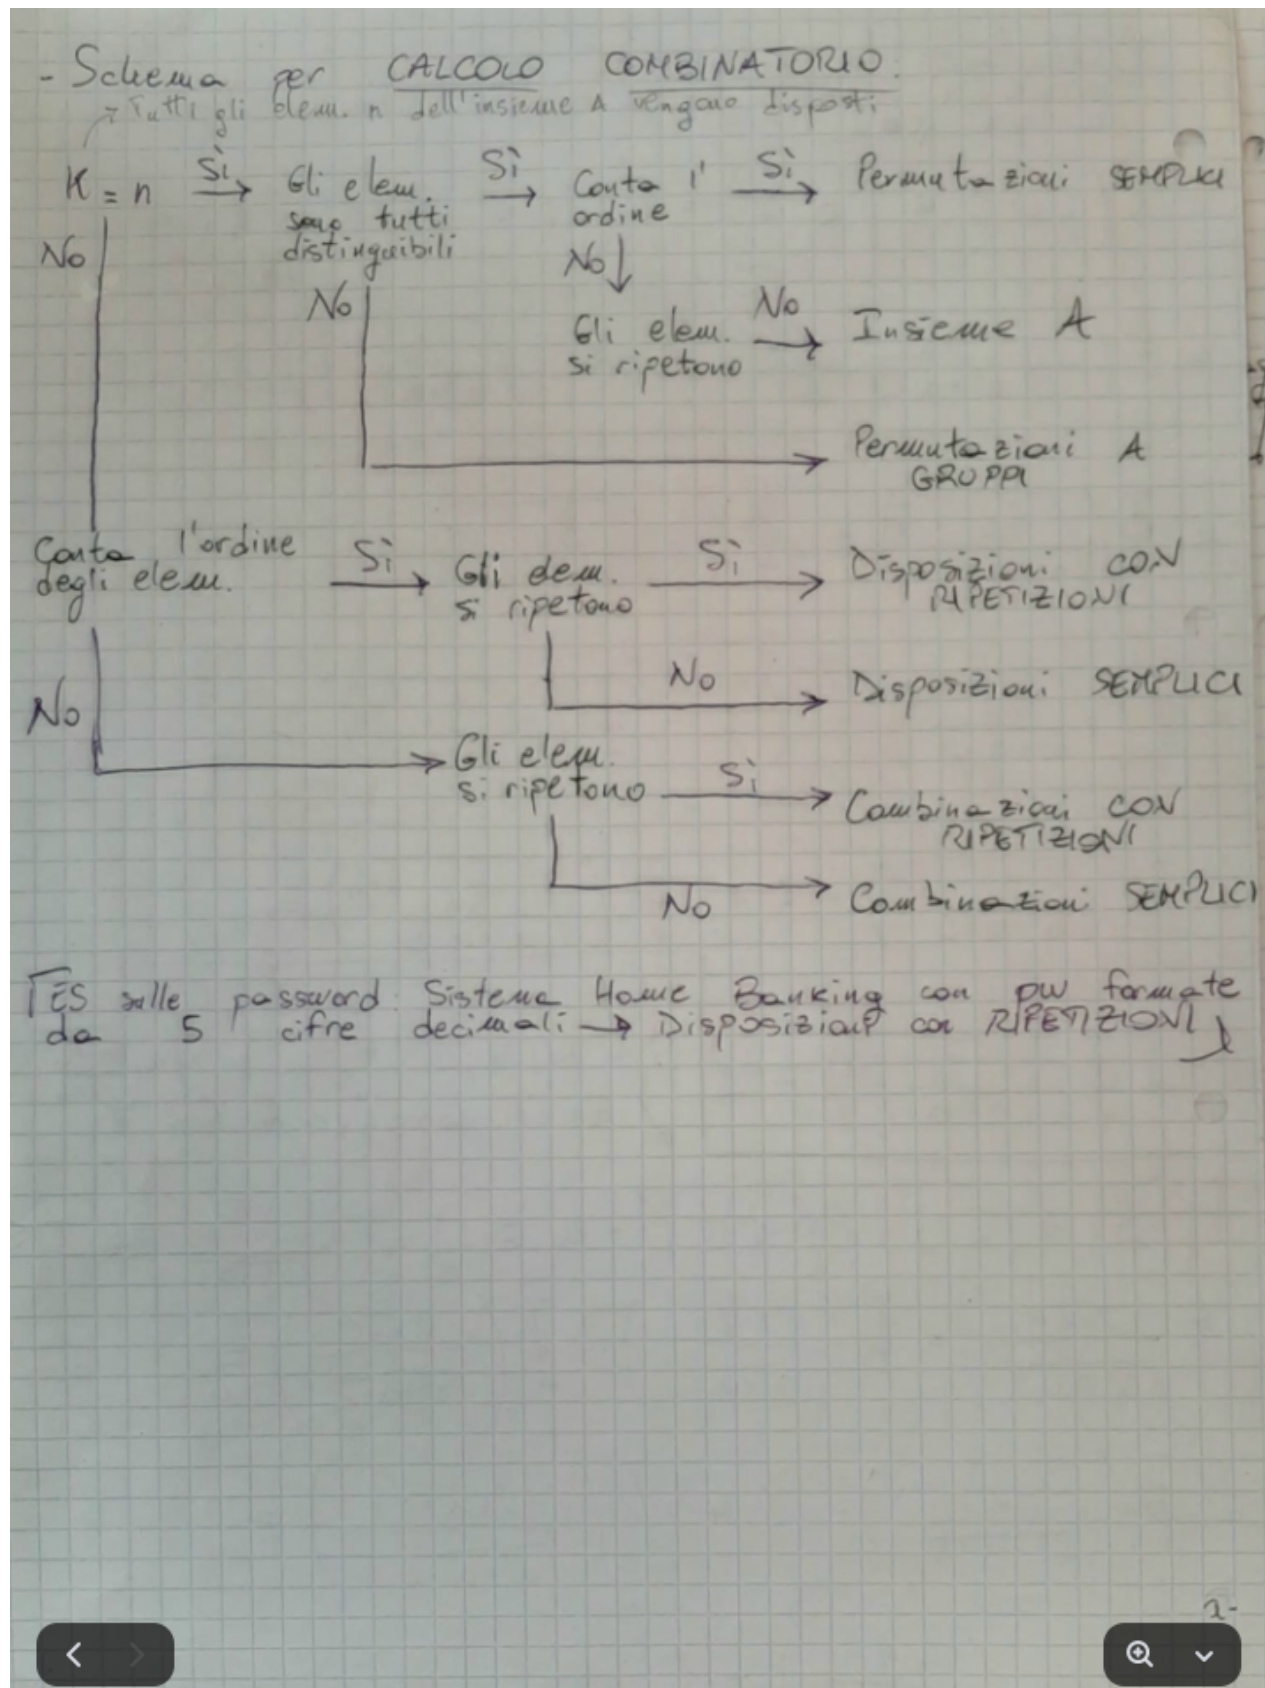 - Schema per CALCOLO COMBINATORIO.
→ Tutti gli elem. n dell'insieme A vengono disposti
K = n Sì → Gli elem. sono tutti distinguibili Sì → Conta l' ordine Sì → Permutazioni SEMPLICI
No
No ↓
No
Gli elem. si ripetono No → Insieme A
Permutazioni A GRUPPI
Conta l'ordine degli elem. Sì → Gli elem. si ripetono Sì → Disposizioni CON RIPETIZIONI
No → Disposizioni SEMPLICI
No
Gli elem. si ripetono Sì → Combinazioni CON RIPETIZIONI
No → Combinazioni SEMPLICI
ES sulle password: Sistema Home Banking con pw formate
da 5 cifre decimali → Disposizioni con RIPETIZIONI